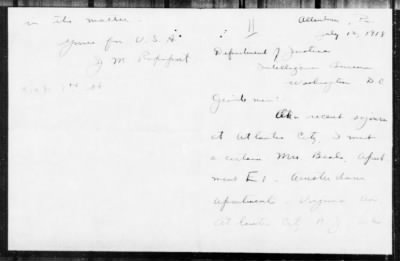 in this matter.
Yours for U.S.A.
J M Rapoport
11
Allentown, Pa.
July 12, 1918
Department of Justice
Intelligence Bureau
Washington D C
Gentlemen:
On a recent sojourn
at Atlantic City, I met
a certain Mrs Beale, Apart
ment E1. Amsterdam
Apartments - Virginia Av.
Atlantic City N.J.